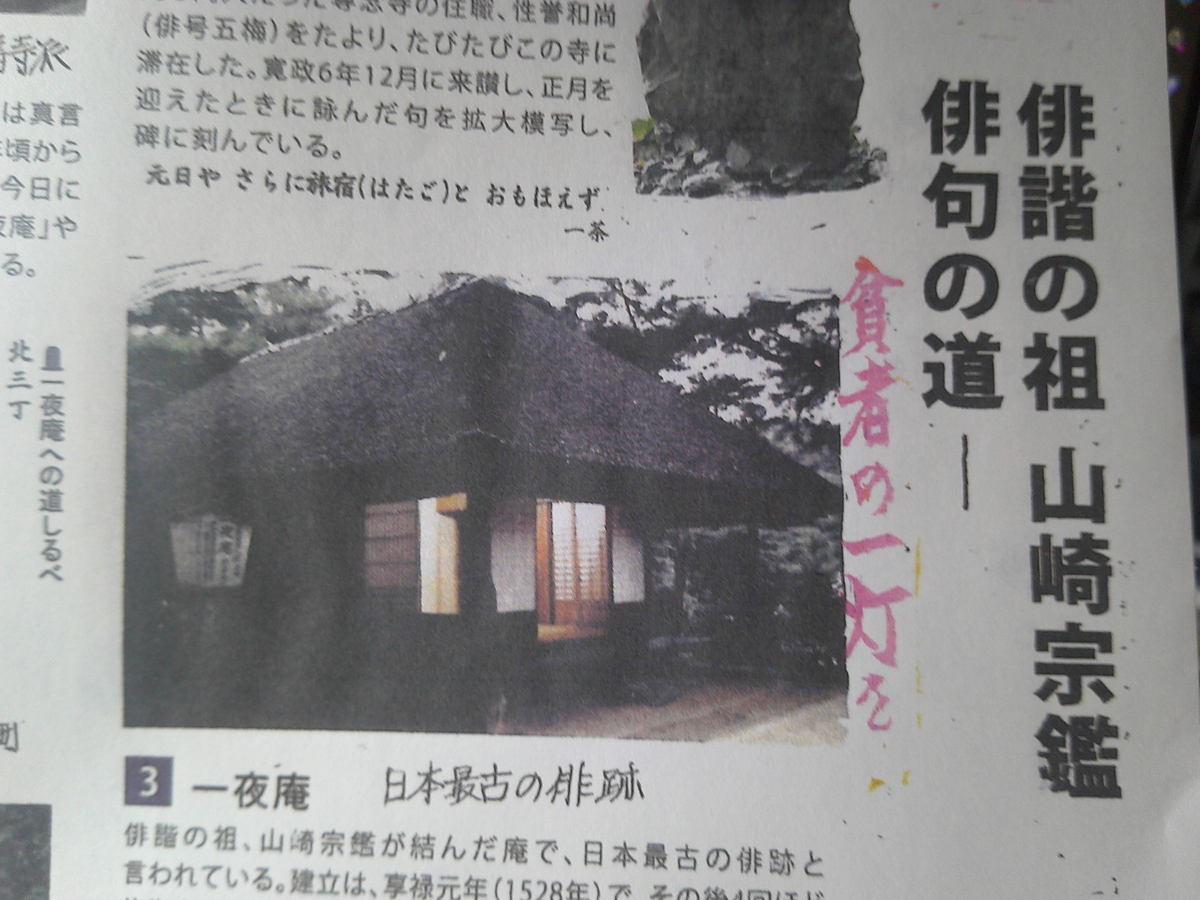 俳諧の祖 山崎宗鑑
俳句の道―
の住職、性誉和尚
(俳号五梅)をたより、たびたびこの寺に
滞在した。寛政6年12月に来讃し、正月を
迎えたときに詠んだ句を拡大模写し、
碑に刻んでいる。
元日や さらに旅宿(はたご)と おもほえず
一茶
貧者の一灯を
3 一夜庵 日本最古の俳跡
俳諧の祖、山崎宗鑑が結んだ庵で、日本最古の俳跡と
言われている。建立は、享禄元年(1528年)で、その後4回ほど
は真言
頃から
今日に
夜庵」や
る。
一夜庵への道しるべ
北三丁